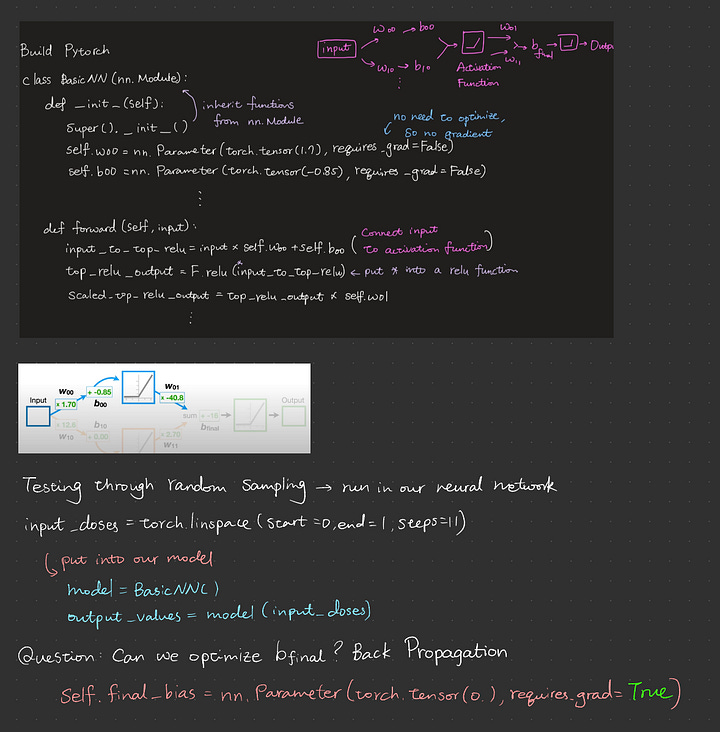 Build Pytorch
input
w00 → b00
w10 → b10
⋮
Activation
Function
w01
w11
b final
→ Outpu
class BasicNN (nn.Module):
inherit functions
from nn.Module
def _init_(self):
super()._init_()
no need to optimize,
so no gradient
self.w00 = nn.Parameter(torch.tensor(1.7), requires_grad=False)
self.b00 = nn.Parameter(torch.tensor(-0.85), requires_grad=False)
⋮
def forward (self, input):
input_to_top_relu = input * self.w00 + self.b00 (Connect input
to activation function)
top_relu_output = F.relu (input_to_top_relu) ← put * into a relu function
scaled_top_relu_output = top_relu_output * self.w01
⋮
Input
w00
× 1.70
+ -0.85
b00
w01
× -40.8
× 12.6
w10
b10
+ 0.00
× 2.70
w11
sum
+ -16
bfinal
Output
Testing through random sampling → run in our neural network
input_doses = torch.linspace (start=0, end=1, steps=11)
put into our model
model = BasicNN()
output_values = model (input_doses)
Question: Can we optimize bfinal? Back Propagation
Self.final_bias = nn.Parameter(torch.tensor(0.), requires_grad=True)